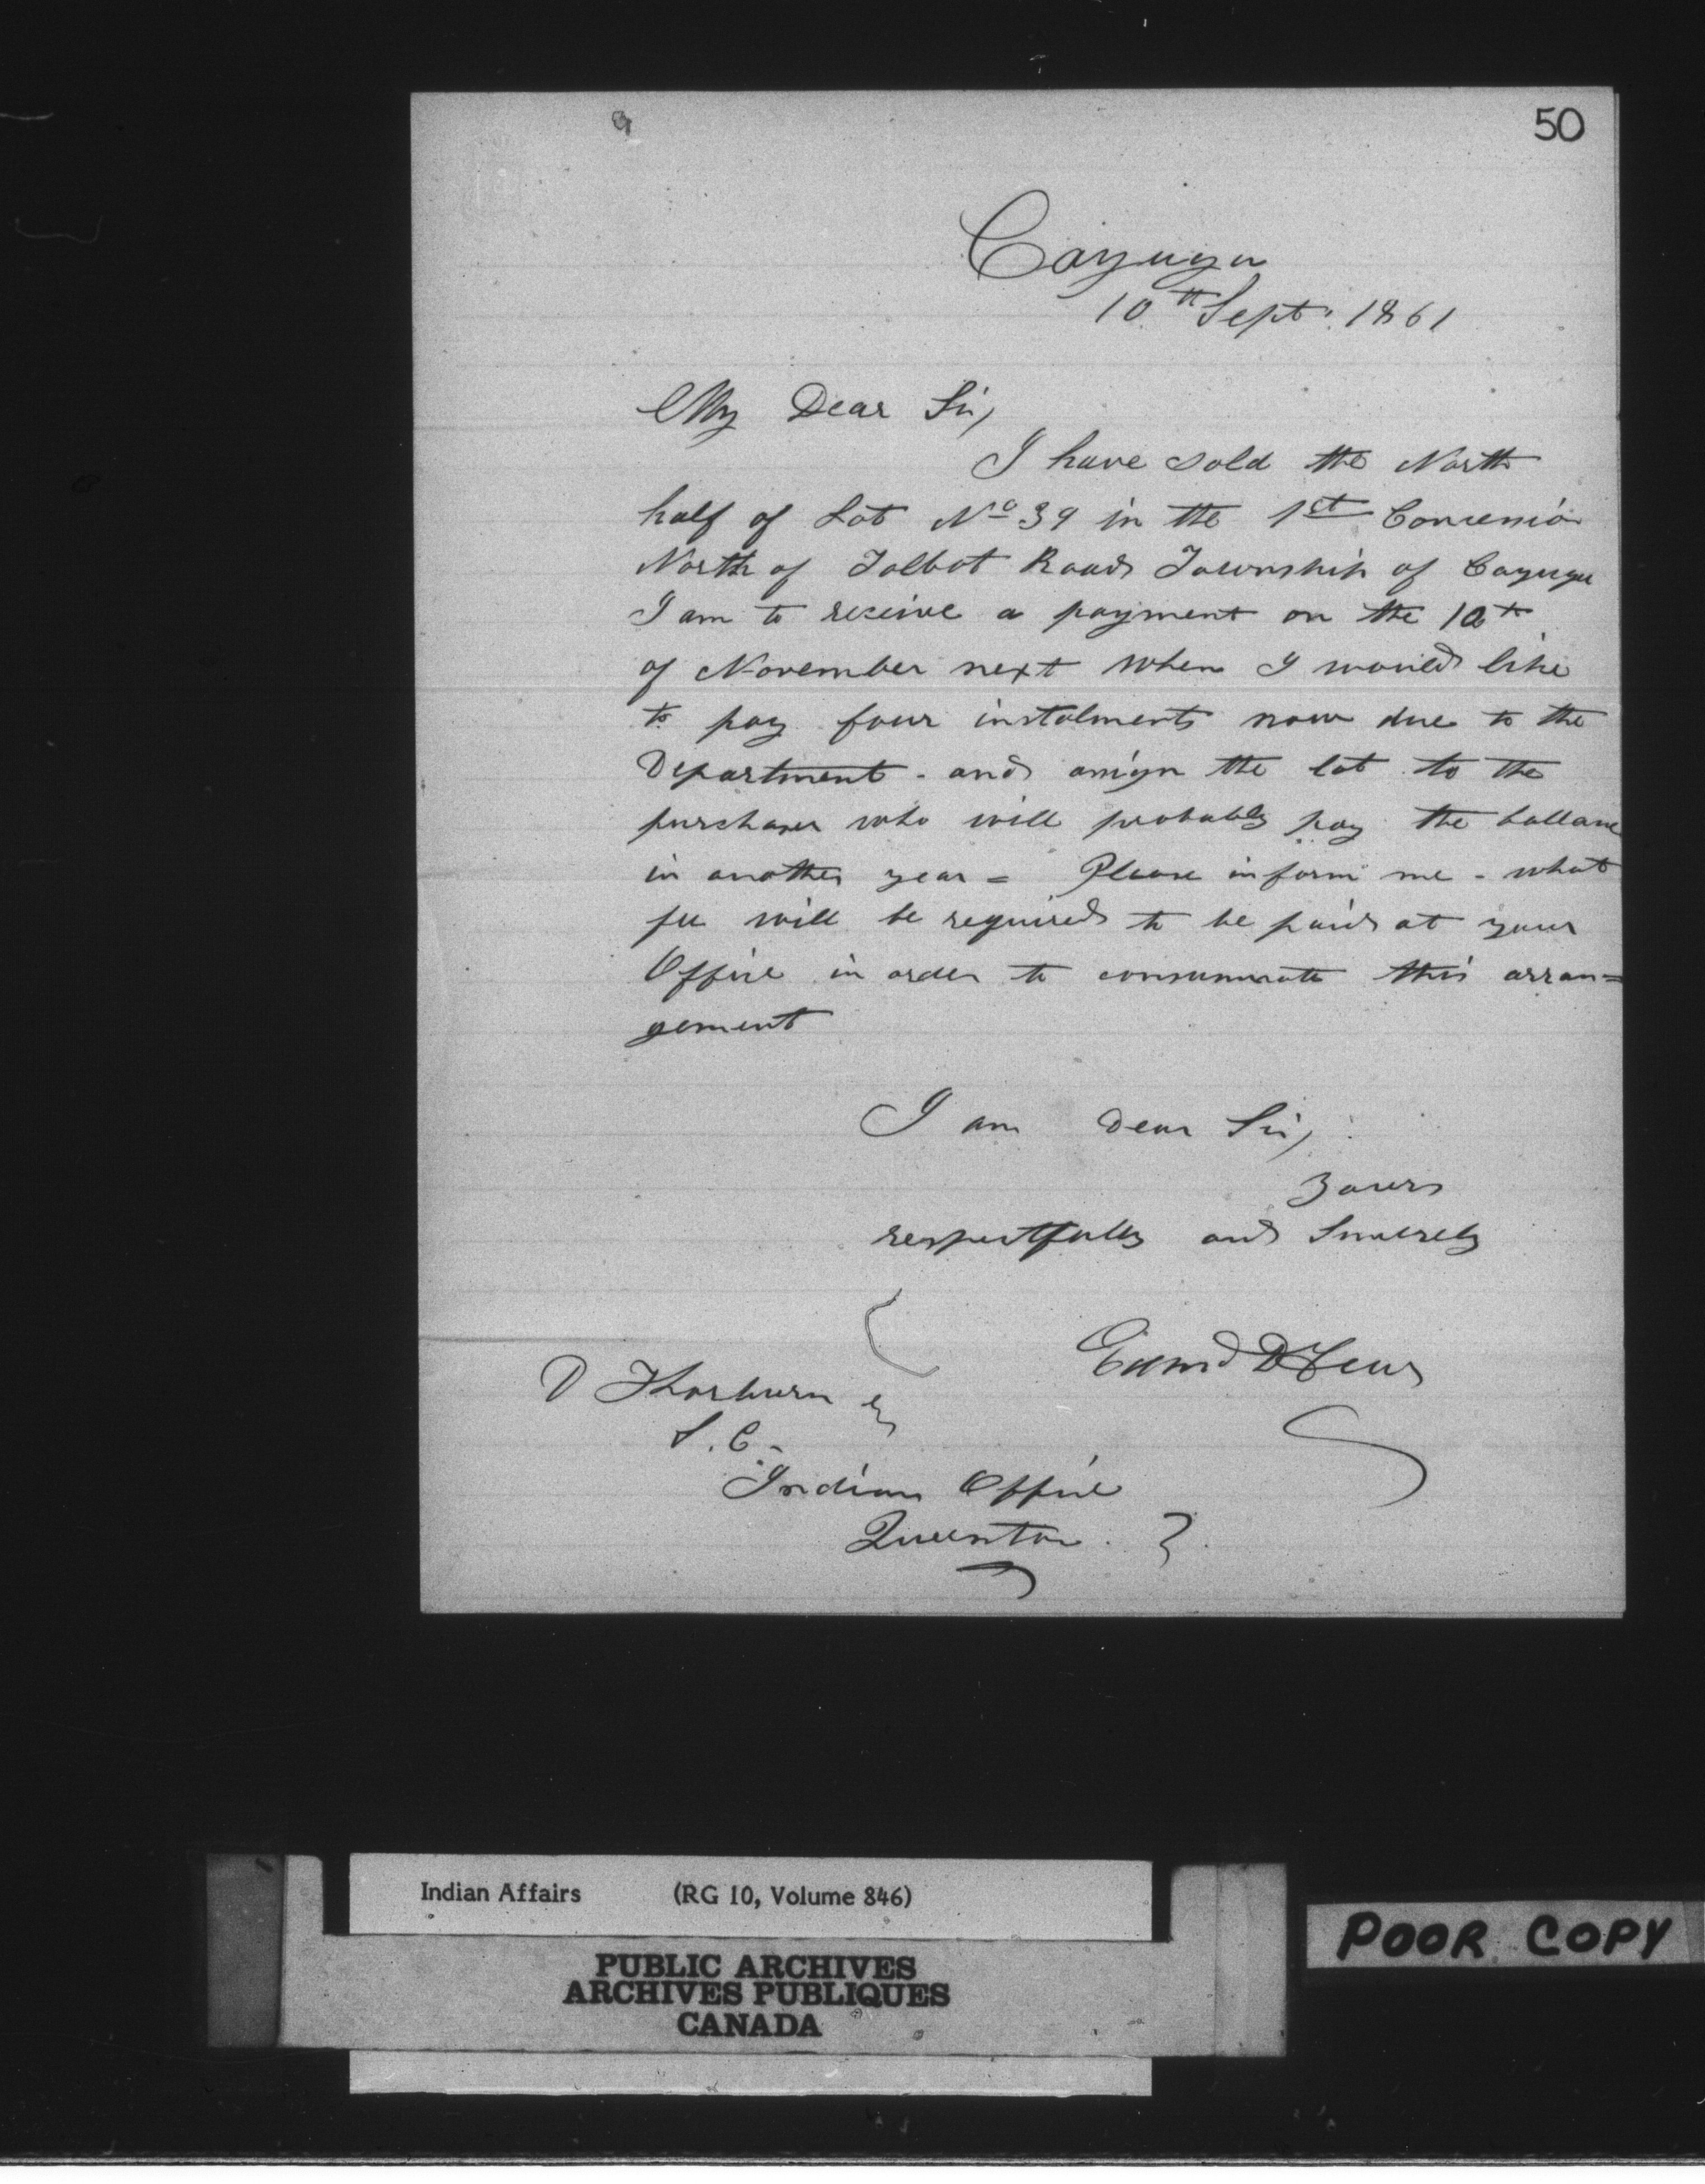 50
Cayuga
10th Sept. 1861
My Dear Sir,
I have sold the North
half of Lot No 39 in the 1st Concession
North of Talbot Road Township of Cayuga
I am to receive a payment on the 10th
of November next when I would like
to pay four instalments now due to the
Department - and assign the lot to the
purchaser who will probably pay the ballance
in another year = Please inform me - what
fee will be required to be paid at your
Office in order to consummate this arran=
gement
I am Dear Sir,
Yours
respectfully and Sincerely
Edmd
D Thorburn
S. C.
Indian Office
Queenston.
Indian Affairs (RG 10, Volume 846)
PUBLIC ARCHIVES
ARCHIVES PUBLIQUES
CANADA
POOR COPY